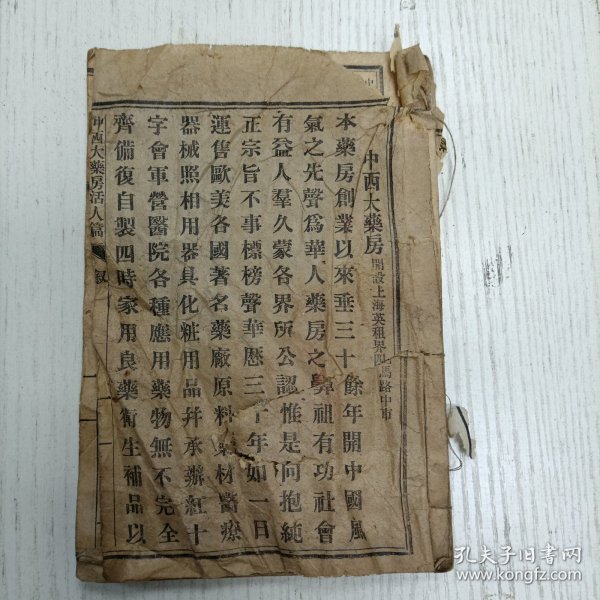 中西大藥房開設上海英租界四馬路中市
本藥房創業以來垂三十餘年開中國風
氣之先聲爲華人藥房之鼻祖有功社會
有益人羣久蒙各界所公認惟是向抱純
正宗旨不事標榜聲華歷三十年如一日
運售歐美各國著名藥廠原料藥材醫療
器械照相用器具化粧用品幷承辦紅十
字會軍營醫院各種應用藥物無不完全
齊備復自製四時家用良藥衛生補品以
中西大藥房活人篇 叙
孔夫子旧书网
www.kongfz.com